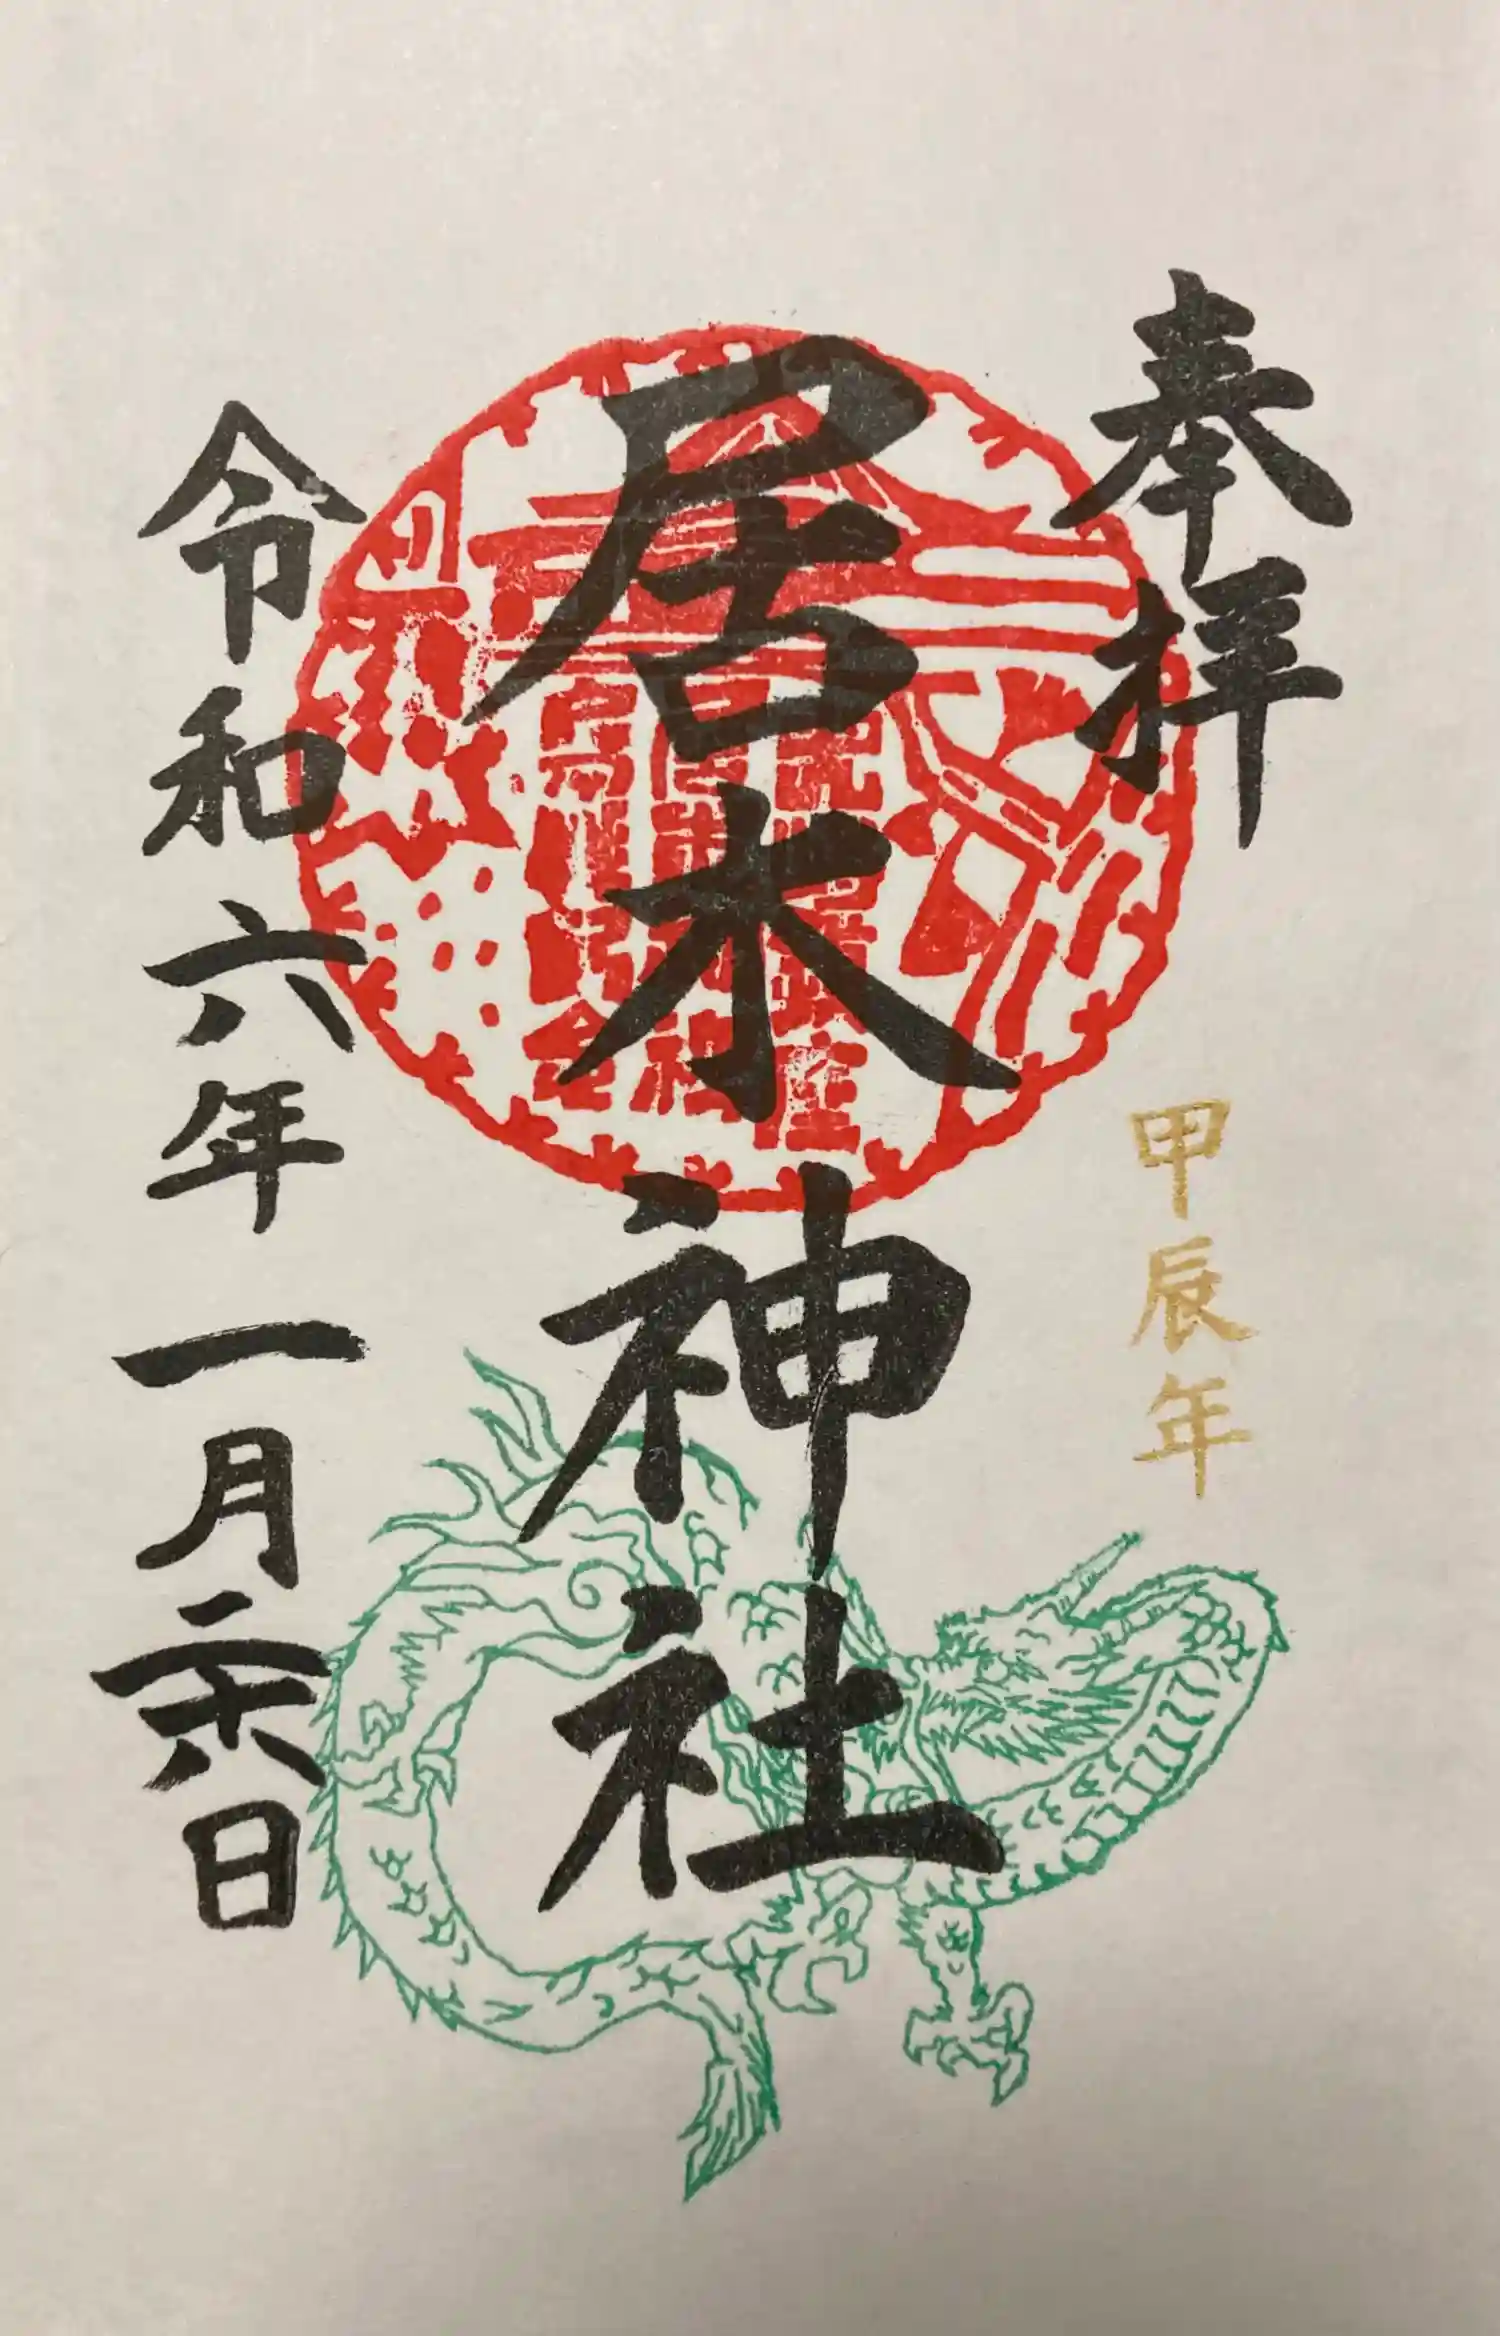 奉拝
甲辰年
居木神社
令和六年一月二十六日